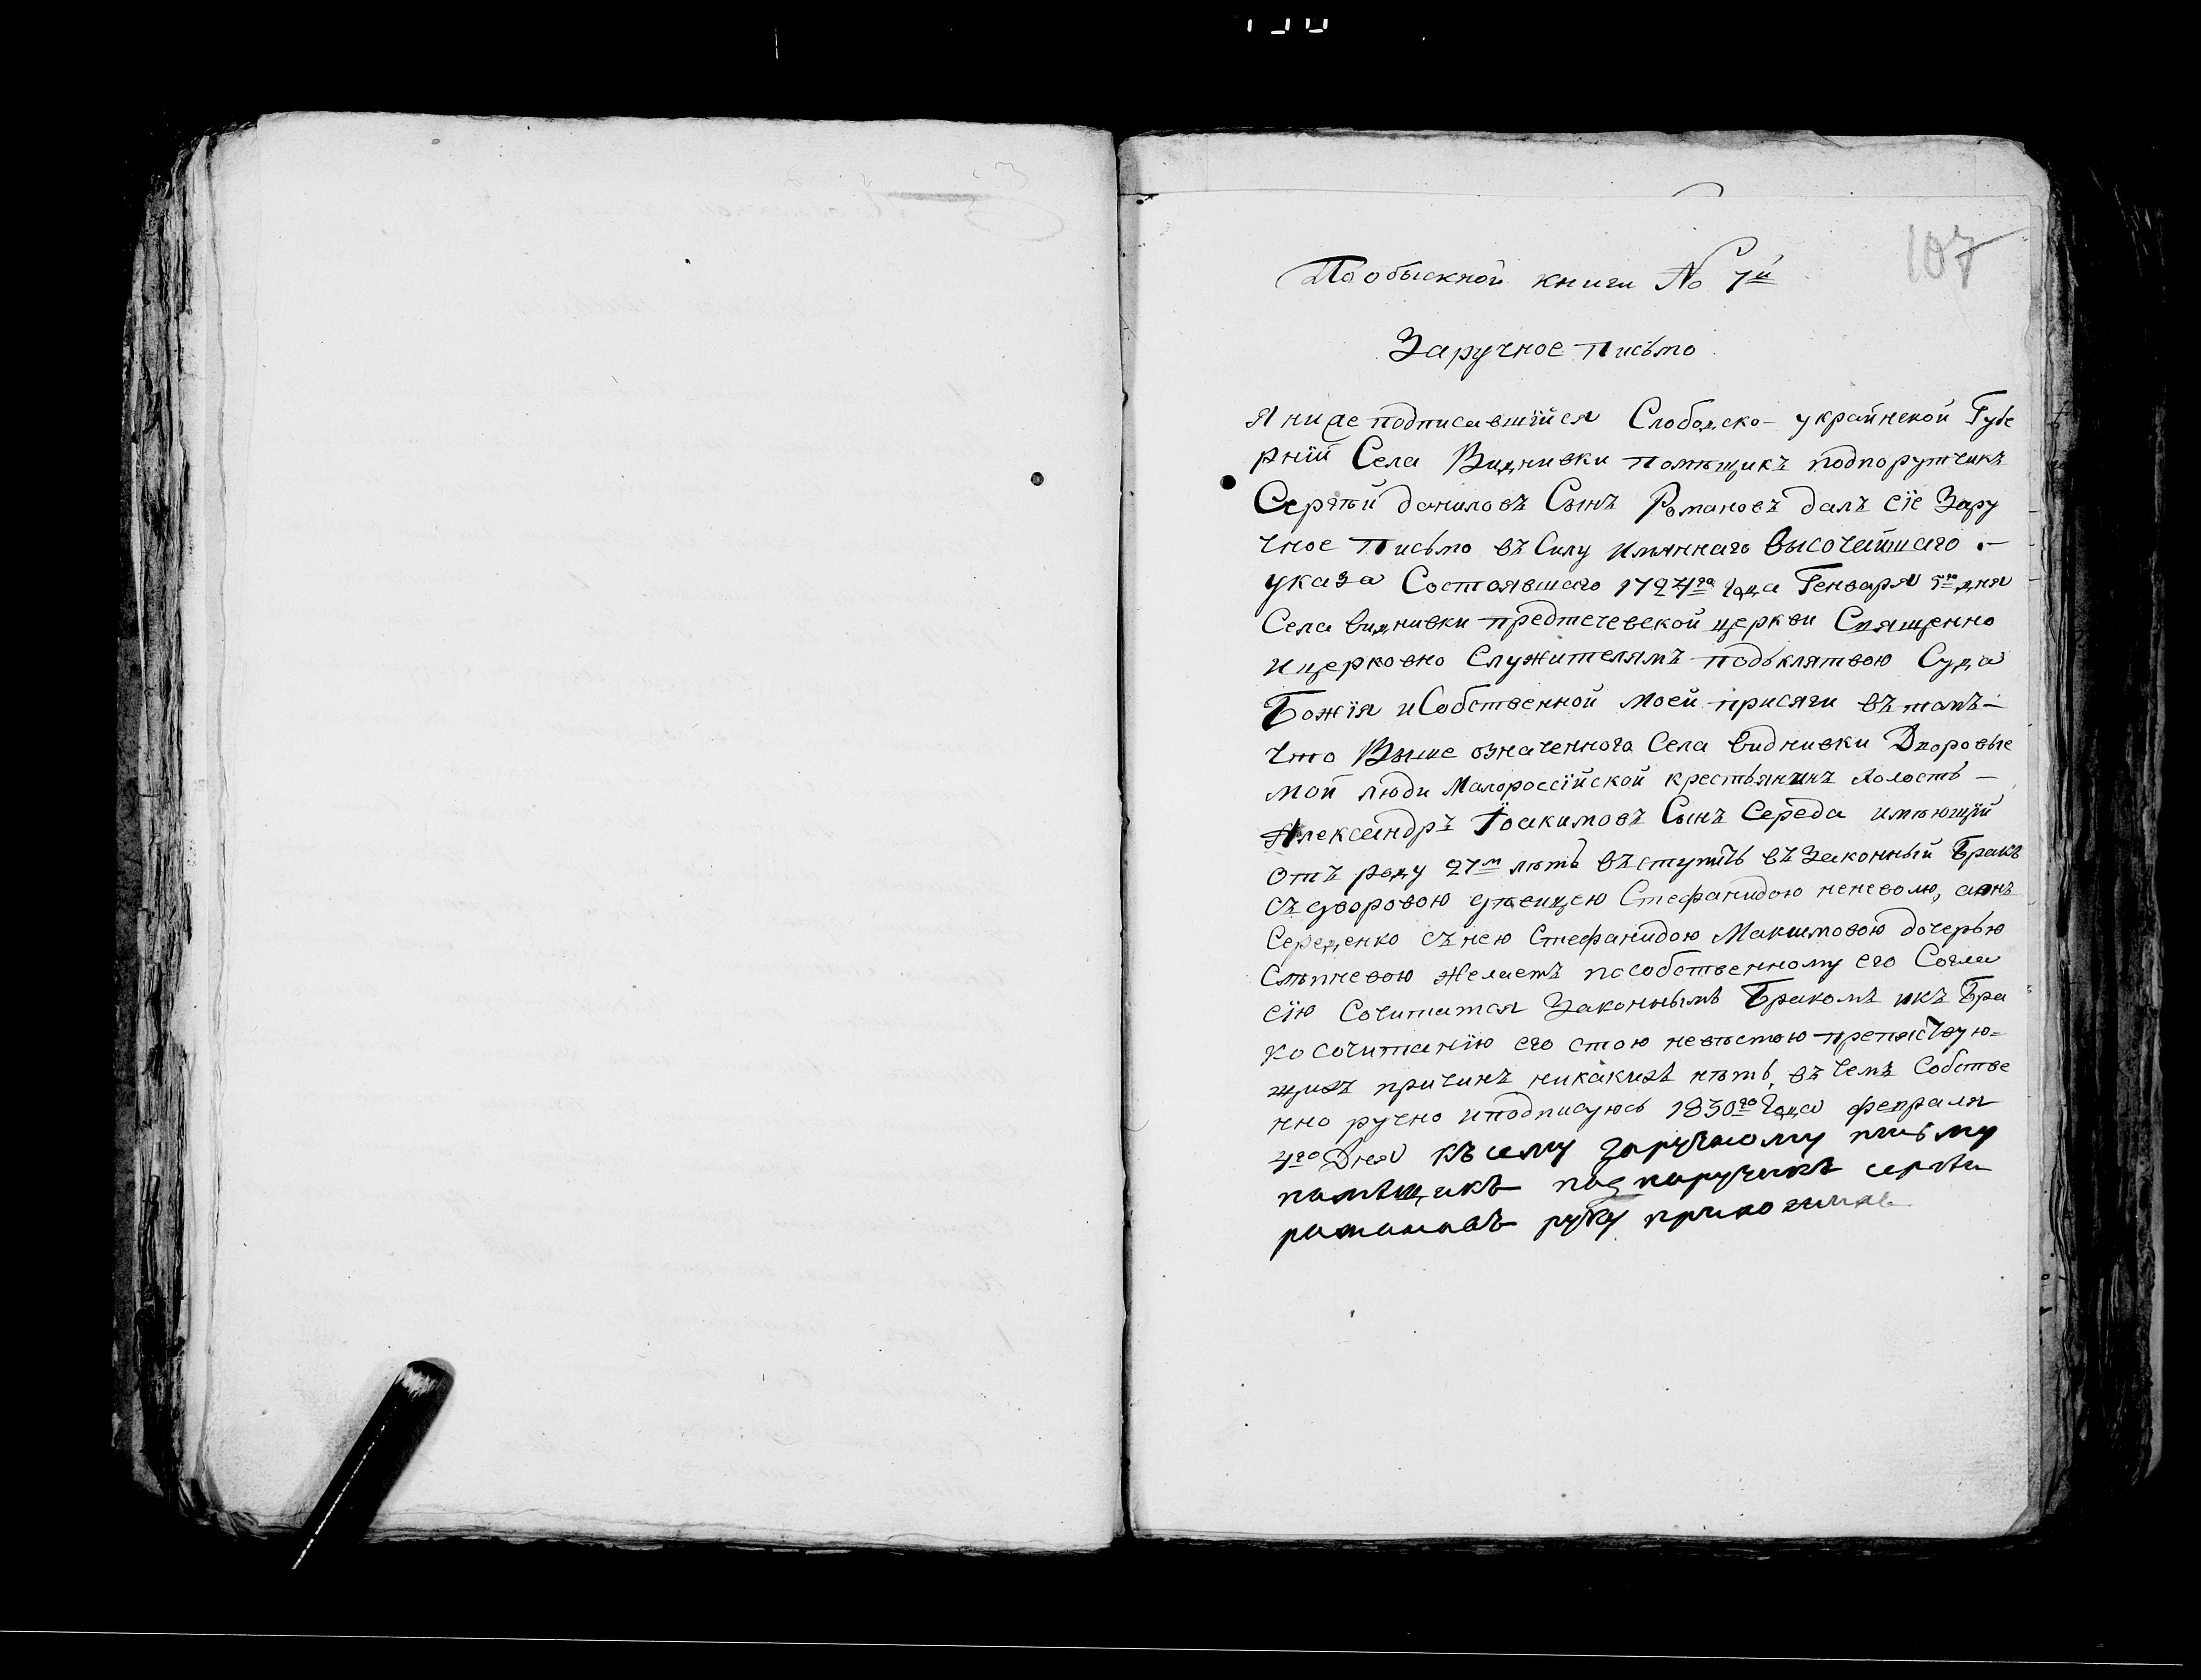 107
По обыскной книги № 7й
Заручное письмо
Я ниже подписавшійся Слободско-украинской Губе
рніи Села Виднивки помѣщикъ подпорутчикъ
Сергѣй даниловъ Сынъ Романовъ далъ сіе Зару
чное письмо въ Силу имяннаго высочайшаго .–
указа Состоявшаго 1724го года Генваря 5го дня
Села виднивки предтечевской церкви Священно
и церковно служителямъ подъ клятвою Суда
Божія и Собственной моей присяги въ томъ –
что Выше означенного Села виднивки Дворовые
мои люди Малороссійской крестьянинъ холость –
Александръ Іоакимовъ Сынъ Середа имѣющій
отъ роду 27м лѣтъ въступить въ Законный Бракъ
съ дворовою дѣвицею Стефанидою неневолю, а онъ
Середенко съ нею Стефанидою Максимовою дочерью
Слѣпневою желаетъ пособственному его Согла
сію Сочитатся Законнымъ Бракомъ и къ Бра
ко сочитанію его стою невѣстою препяствую=
щихъ причинъ никакихъ нѣтъ, въ чемъ Собстве
нно ручно и подписуюсь 1830го года февраля
4го Дня къ сему заручному письму
памѣщикъ подпаручикъ сергѣи
рамановъ руку приложилъ